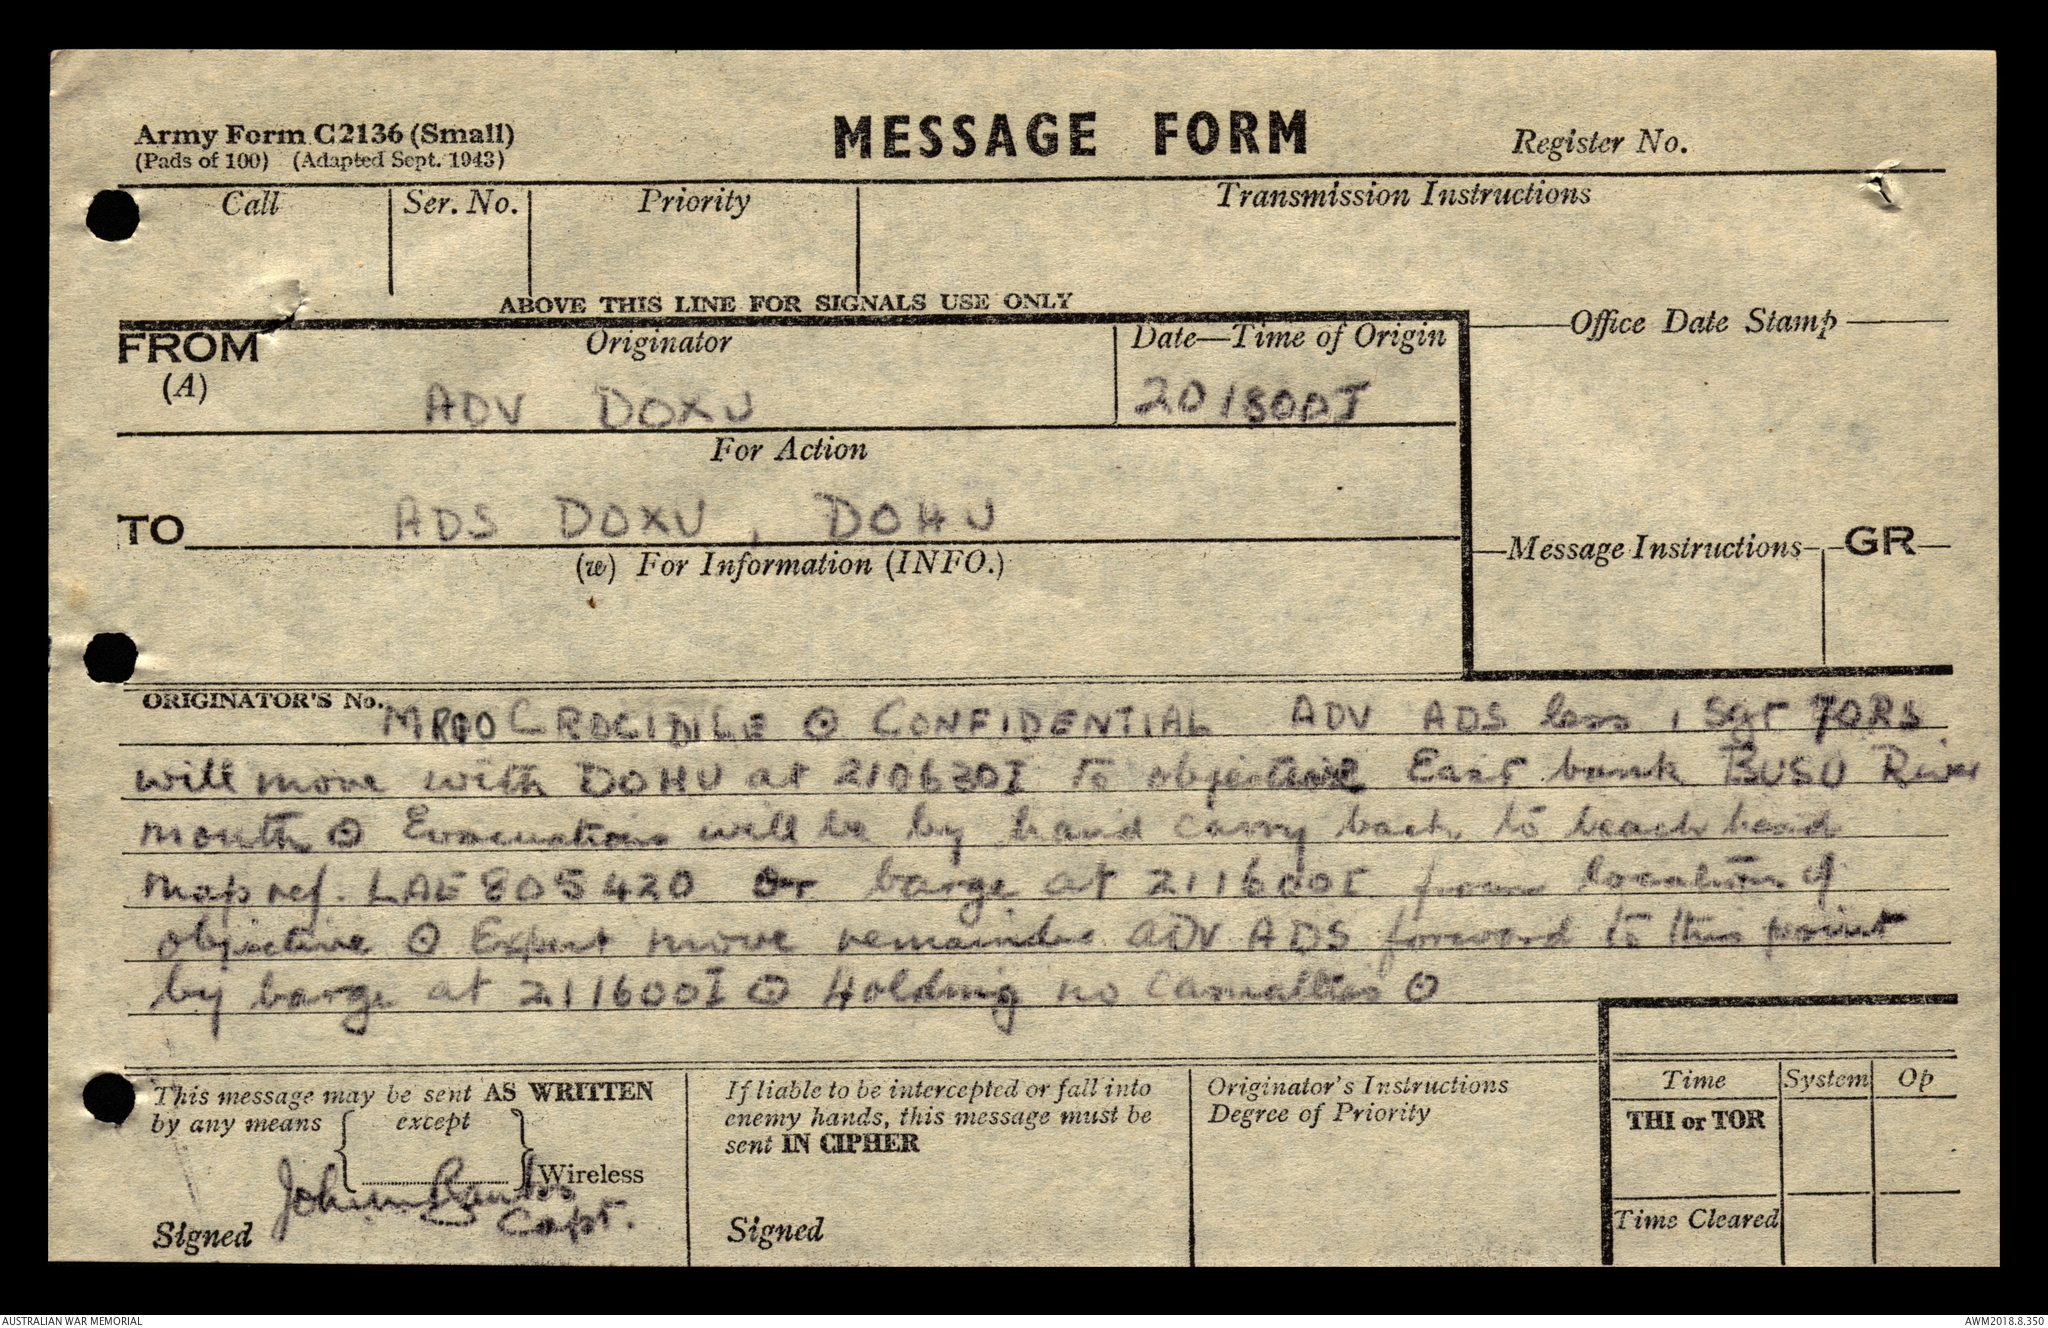 Army Form C2136 (Small)
(Pads of 100) (Adapted Sept. 1943)
MESSAGE FORM
Register No.
Call
Ser. No.
Priority
Transmission Instructions
ABOVE THIS LINE FOR SIGNALS USE ONLY
FROM
(A)
Originator
ADV DOXU
Date—Time of Origin
201800I
Office Date Stamp
For Action
TO
ADS DOXU, DOHU
(w) For Information (INFO.)
Message Instructions
GR
ORIGINATOR'S No.
CONFIDENTIAL ADV ADS less 1 Sgt 7ORs
will move with DOHU at 210630I to objective East bank BUSU River
mouth ⊙ Evacuation will be by hand carry back to beach head
map ref. LAE 805420 or barge at 211600I from location of
objective ⊙ Expect move remainder ADV ADS forward to this point
by barge at 211600I ⊙ Holding no casualties ⊙
This message may be sent AS WRITTEN
by any means except
Wireless
Signed
John Banks
Capt.
If liable to be intercepted or fall into
enemy hands, this message must be
sent IN CIPHER
Signed
Originator's Instructions
Degree of Priority
Time
System
Op
THI or TOR
Time Cleared
AUSTRALIAN WAR MEMORIAL
AWM2018.8.350